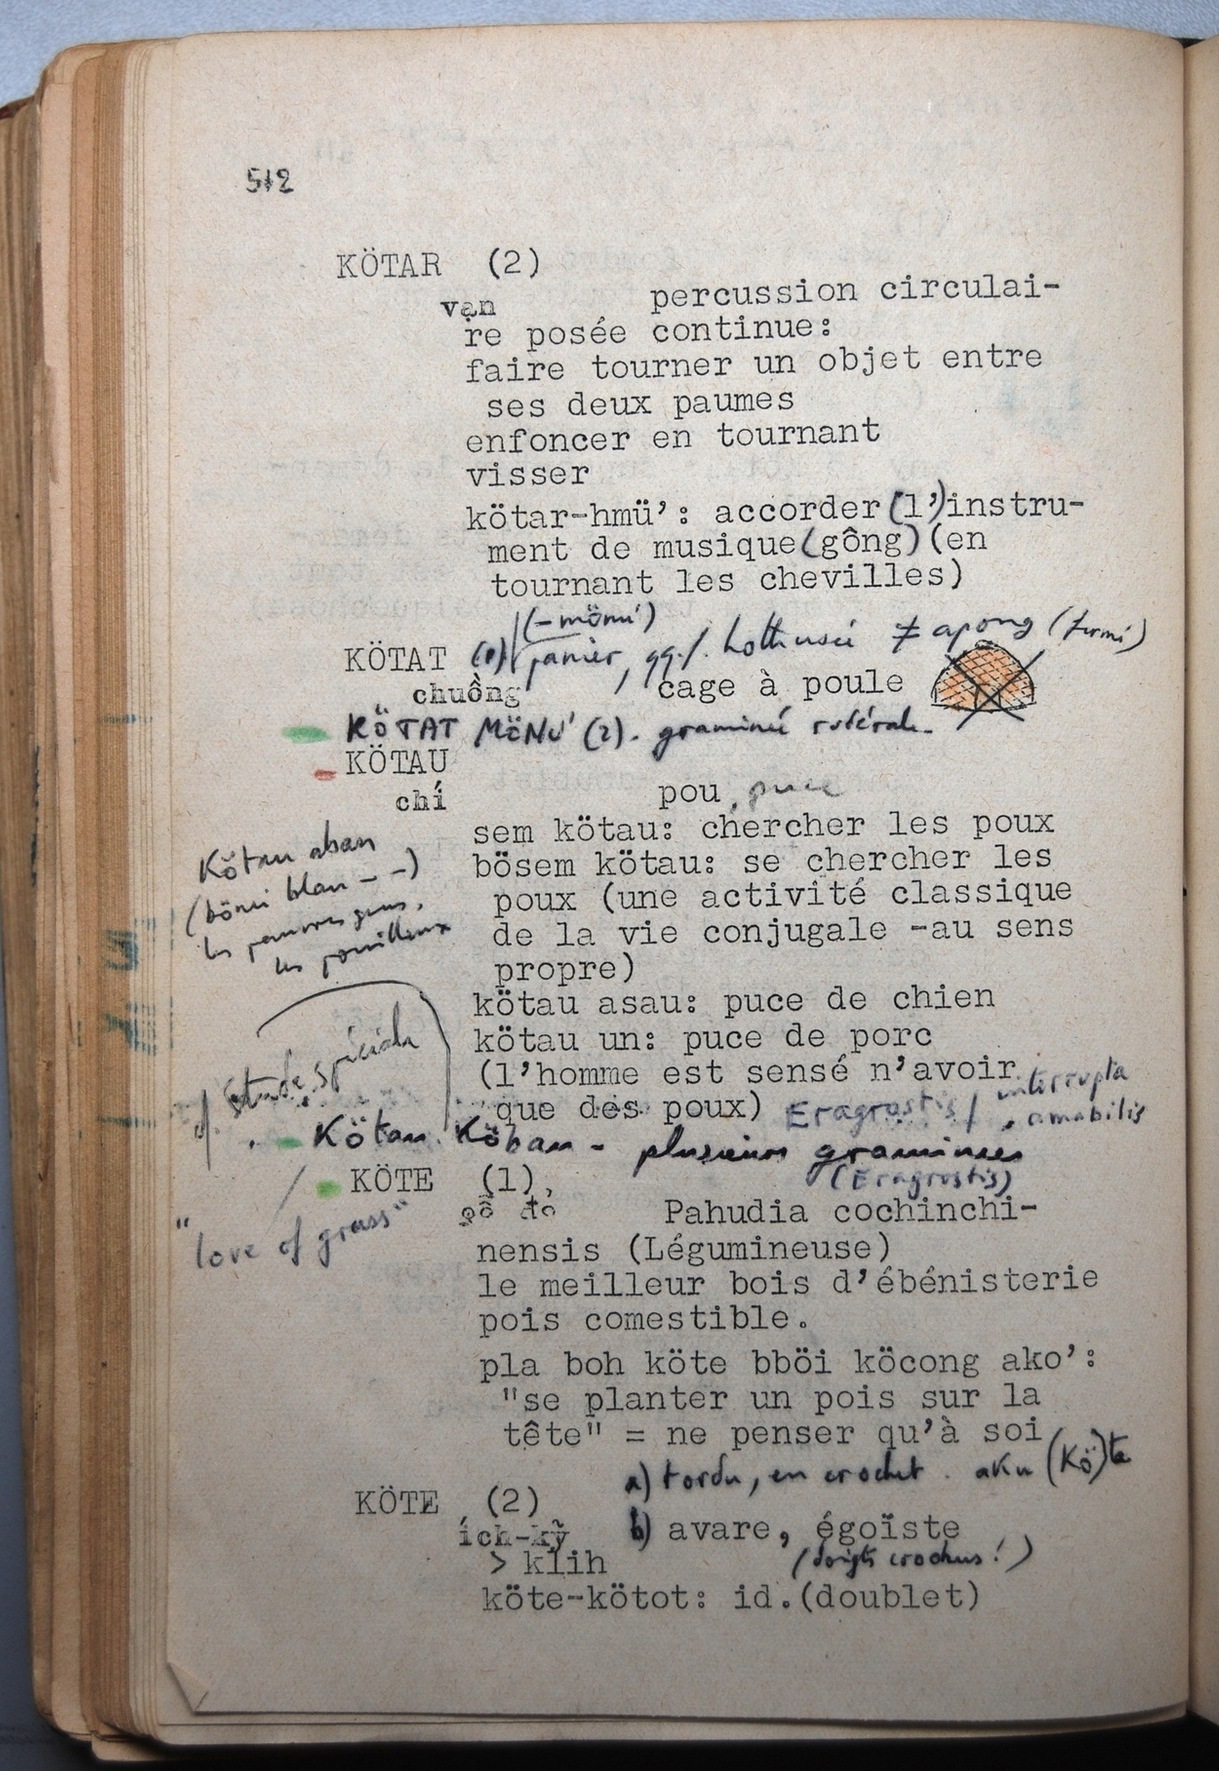 512
KÖTAR (2)
vạn percussion circulai-
re posée continue:
faire tourner un objet entre
ses deux paumes
enfoncer en tournant
visser
kötar-hmü': accorder (l')instru-
ment de musique (gông) (en
tournant les chevilles)
(-mönu')
KÖTAT (1) panier, ≠ apong (fermé)
chuồng cage à poule
KÖTAT MÖNU' (2). graminée rudérale.
KÖTAU
chí pou, puce
sem kötau: chercher les poux
bösem kötau: se chercher les
poux (une activité classique
de la vie conjugale -au sens
propre)
Kötau aban
les pauvres gens,
les pouilleux
kötau asau: puce de chien
kötau un: puce de porc
(l'homme est sensé n'avoir
que des poux) Eragrostis / interrupta
, amabilis
cf étude spéciale
Kötau Köban - plusieurs graminées
(Eragrostis)
"love of grass"
KÖTE (1),
gõ đỏ Pahudia cochinchi-
nensis (Légumineuse)
le meilleur bois d'ébénisterie
pois comestible.
pla boh köte bböi köcong ako':
"se planter un pois sur la
tête" = ne penser qu'à soi
a) tordu, en crochet. aku (Kö)te
KÖTE (2)
ích-kỹ b) avare, égoïste
> klih (doigts crochus!)
köte-kötot: id.(doublet)